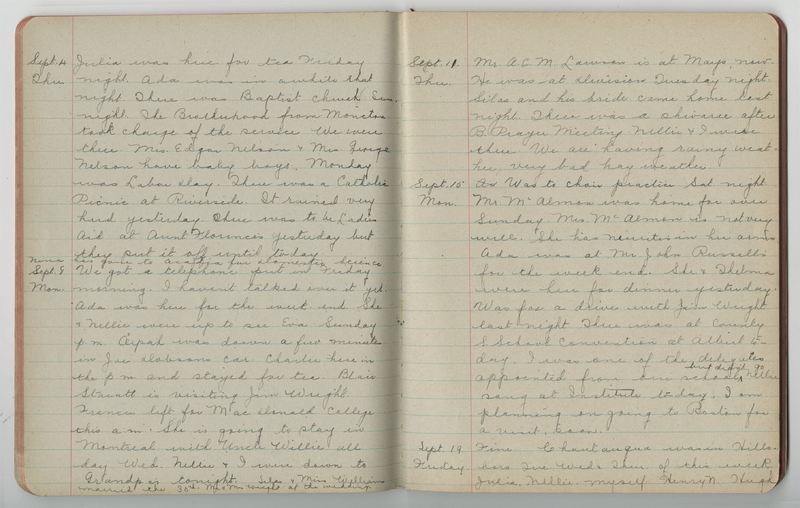 Sept. 4 Julia was here for tea Friday
Thu. night. Ada was in awhile that
night. There was Baptist Church Sun.
night. The Brotherhood from Moncton
took charge of the service. We were
there. Mrs. Edgar Nelson & Mrs. George
Nelson have baby boys. Monday
was Labor day. There was a Catholic
Picnic at Riverside. It rained very
hard yesterday. There was to be Ladies
Aid at Aunt Florence's yesterday but
they put it off until to-day.
Nina has gone to Acadia for domestic science
Sept. 8 We got a telephone put in Friday
Mon. morning. I haven't talked over it yet.
Ada was here for the week end. She
& Nellie were up to see Eva Sunday
p.m. Orpah was down a few minutes
in Joe car. Charlie here in
the p.m. and stayed for tea. Blair
is visiting Jim Wright.
Frances left for MacDonald College
this a.m. She is going to stay in
Montreal with Uncle Willie all
day Wed. Nellie & I were down to
Grandpa's tonight. Silas & Miss Williams
married the 30th. Mr. & Mrs. Wright at the wedding
Sept. 11. Mr. A.C.M. Lawson is at Mays now.
Thu. He was at Division Tuesday night.
Silas and his bride came home last
night. There was a shivaree after
B. Prayer Meeting. Nellie & I were
there. We are having rainy weat-
her, very bad hay weather.
Sept. 15 Ax Was to choir practice Sat. night.
Mon. Mr. McAlmon was home for over
Sunday. Mrs. McAlmon is not very
well. She has neuritis in her arms.
Ada was at Mr. John Russell's
for the week end. She & Thelma
were here for dinner yesterday.
Was for a drive with Jim Wright
last night. There was at County
S School Convention at Albert to-
day. I was one of the delegates
appointed from our school, but didn't go. Nellie
sang at Institute to-day. I am
planning on going to Boston for
a visit, soon.
Sept. 19 Fine. Chautauqua was in Hills-
Friday boro Tue. Wed. & Thur. of this week
Julia, Nellie, myself, Henry N. Hugh